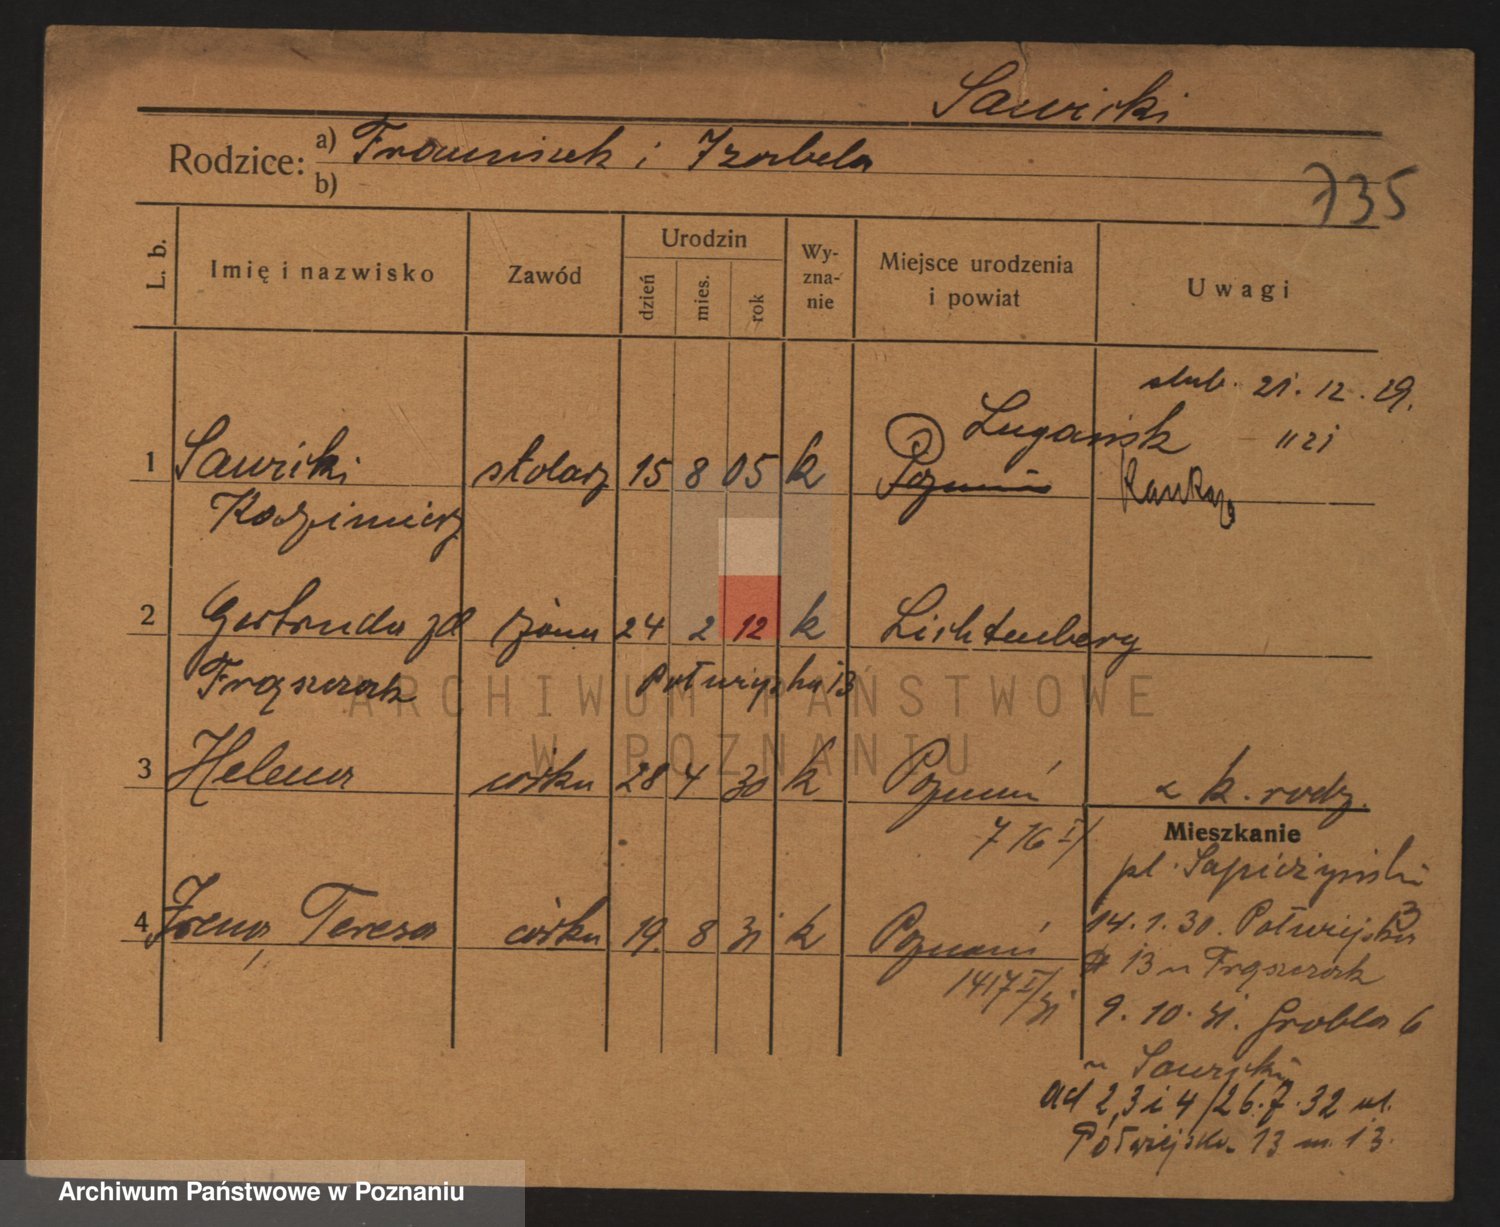 Sawicki
Rodzice: a) Franciszek i Izabela
b)
735
L. b. Imię i nazwisko Zawód Urodzin dzień mies. rok Wy-zna-nie Miejsce urodzenia i powiat Uwagi
ślub. 21.12.29.
Ługańsk
1 Sawicki stolarz 15 8 05 k Poznań
Kazimierz
2 Gertruda zd żona 24 2 12 k Lichtenberg
Frąszczak Półwiejska 13
3 Helena córka 28 4 30 k Poznań k. rodz.
716 I/
Mieszkanie
pl. Sapieżyński 3
4 Irena, Teresa córka 19. 8 31 k Poznań
1417 I/31
14.1.30. Półwiejska
13 u Frąszczak
9.10.31. Grobla 6
u Sawicki
ad 2,3 i 4/26.7.32 ul.
Półwiejska 13 m. 13.
ARCHIWUM PAŃSTWOWE
W POZNANIU
Archiwum Państwowe w Poznaniu